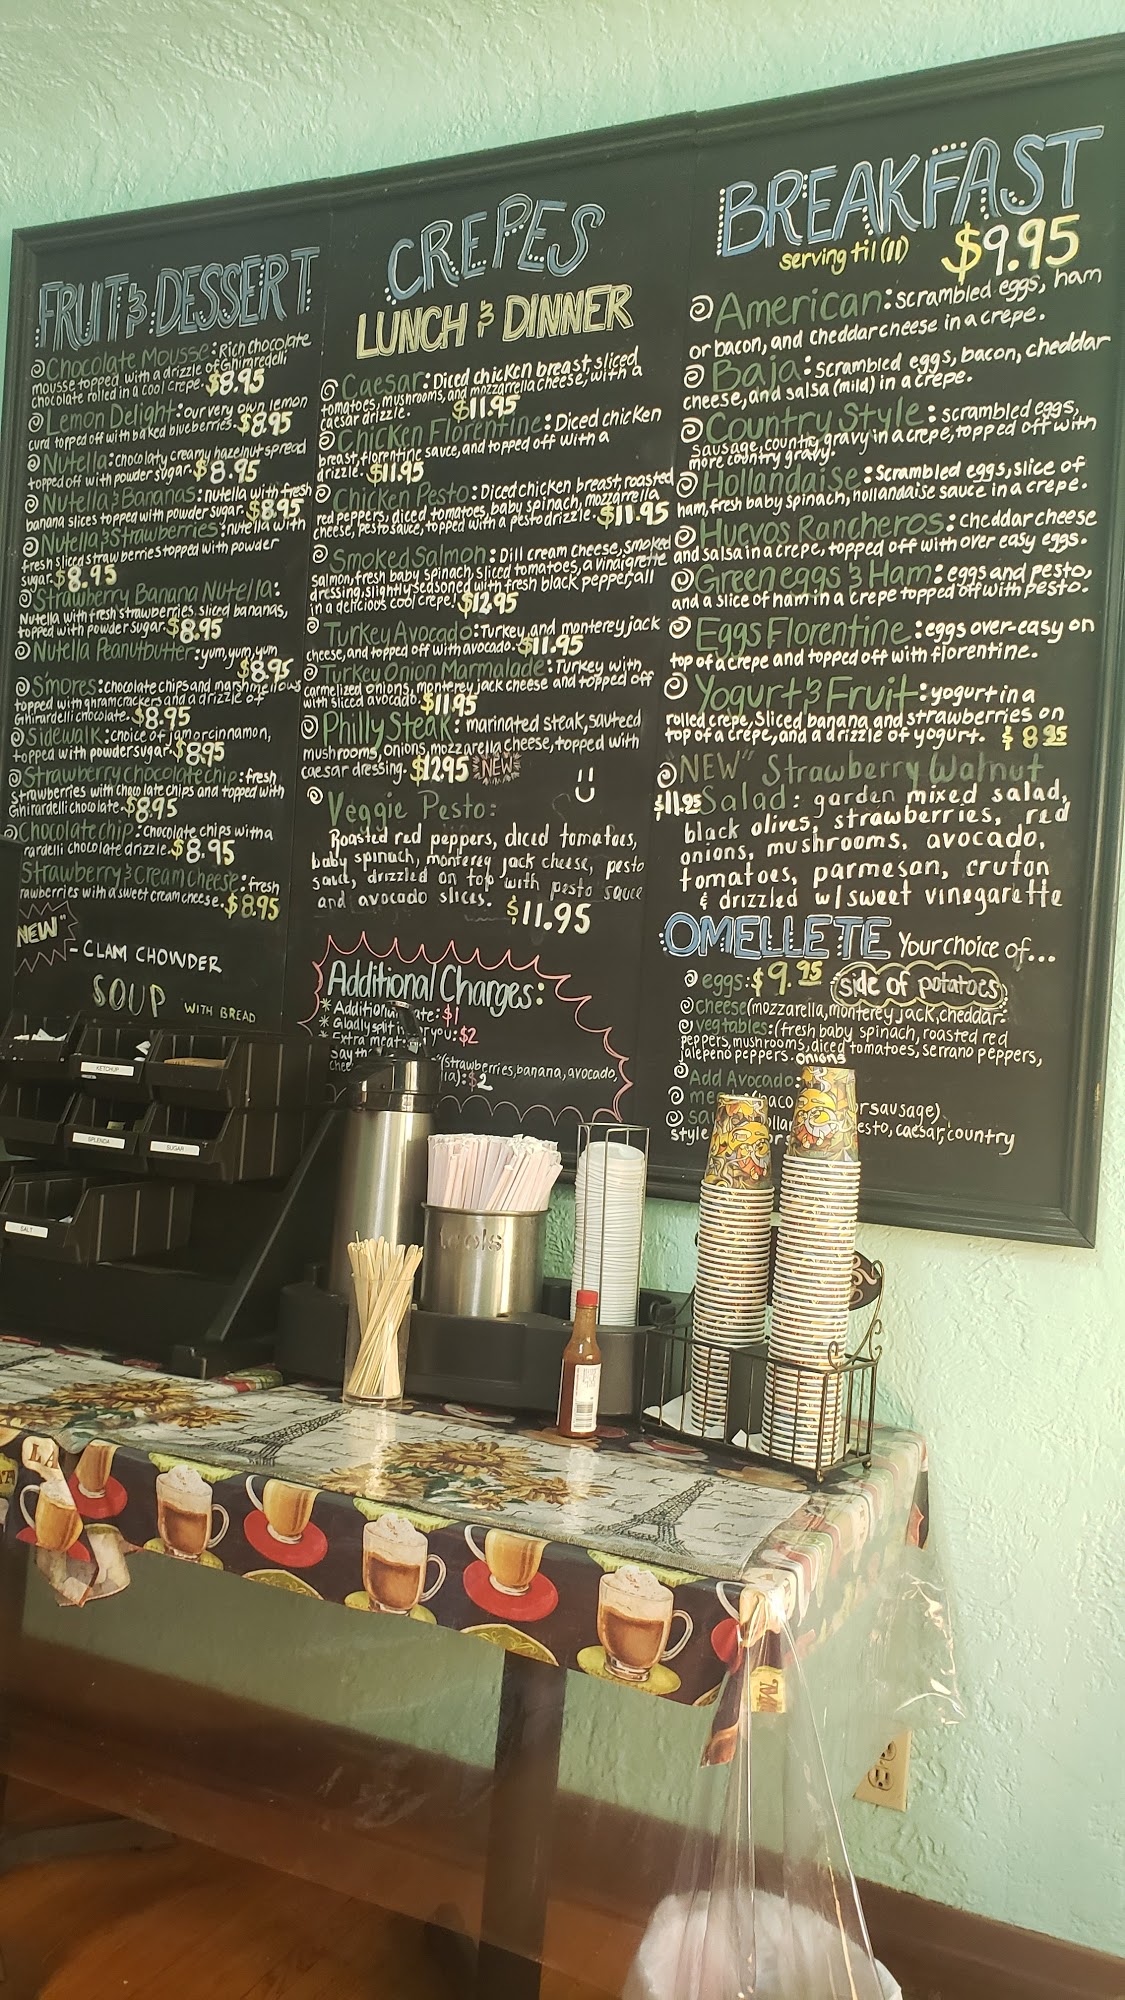 FRUIT & DESSERT
Chocolate Mousse: Rich chocolate
mousse topped with a drizzle of Ghimredelli
chocolate rolled in a cool crepe. $8.95
Lemon Delight: our very own lemon
curd topped off with baked blueberries. $8.95
Nutella: chocolaty creamy hazelnut spread
topped off with powder sugar. $8.95
Nutella & Bananas: nutella with fresh
banana slices topped with powder sugar. $8.95
Nutella & Strawberries: nutella with
fresh sliced strawberries topped with powder
sugar. $8.95
Strawberry Banana Nutella:
Nutella with fresh strawberries, sliced bananas,
topped with powder sugar. $8.95
Nutella Peanutbutter: yum, yum, yum
$8.95
S'mores: chocolate chips and marshmellows
topped with ghramcrackers and a drizzle of
Ghirardelli chocolate. $8.95
Sidewalk: choice of jam or cinnamon,
topped with powder sugar. $8.95
Strawberry chocolate chip: fresh
strawberries with chocolate chips and topped with
Ghirardelli chocolate. $8.95
Chocolate chip: chocolate chips with a
rardelli chocolate drizzle. $8.95
Strawberry & Cream Cheese: fresh
rawberries with a sweet cream cheese. $8.95
NEW"
- CLAM CHOWDER
SOUP WITH BREAD
CREPES
LUNCH & DINNER
Caesar: Diced chicken breast, sliced
tomatoes, mushrooms, and mozzarella cheese, with a
caesar drizzle. $11.95
Chicken Florentine: Diced chicken
breast, florentine sauce, and topped off with a
drizzle. $11.95
Chicken Pesto: Diced chicken breast roasted
red peppers, diced tomatoes, baby spinach, mozzarella
cheese, pesto sauce, topped with a pesto drizzle. $11.95
Smoked Salmon: Dill cream cheese, smoked
salmon, fresh baby spinach, sliced tomatoes, a vinaigrette
dressing, slightly seasoned with fresh black pepper, all
in a delicious cool crepe! $12.95
Turkey Avocado: Turkey, and monterey jack
cheese, and topped off with avocado. $11.95
Turkey Onion Marmalade: Turkey with
carmelized onions, monterey jack cheese and topped off
with sliced avocado. $11.95
Philly Steak: marinated steak, sauteed
mushrooms, onions, mozzarella cheese, topped with
caesar dressing. $12.95 NEW
Veggie Pesto:
Roasted red peppers, diced tomatoes,
baby spinach, monterey jack cheese, pesto
saud, drizzled on top with pesto sauce
and avocado slices. $11.95
Additional Charges:
* Addition ate: $1
* Gladly split it r you: $2
* Extra meat:
Say th
chee (strawberries, banana, avocado,
la): $2
BREAKFAST
serving til (11) $9.95
American: scrambled eggs, ham
or bacon, and cheddar cheese in a crepe.
Baja: scrambled eggs, bacon, cheddar
cheese, and salsa (mild) in a crepe.
Country Style: scrambled eggs,
sausage, country gravy in a crepe, topped off with
more country gravy.
Hollandaise: Scrambled eggs, slice of
ham, fresh baby spinach, hollandaise sauce in a crepe.
Huevos Rancheros: cheddar cheese
and salsa in a crepe, topped off with over easy eggs.
Green eggs & Ham: eggs and pesto,
and a slice of ham in a crepe topped off with pesto.
Eggs Florentine: eggs over-easy on
top of a crepe and topped off with florentine.
Yogurt & Fruit: yogurt in a
rolled crepe, Sliced banana and strawberries on
top of a crepe, and a drizzle of yogurt. $8.95
"NEW" Strawberry Walnut
$11.95 Salad: garden mixed salad,
black olives, strawberries, red
onions, mushrooms, avocado,
tomatoes, parmesan, cruton
& drizzled w/ sweet vinegarette
OMELLETE Your choice of...
eggs: $9.95 side of potatoes
cheese (mozzarella, monterey jack, cheddar.
vegtables: (fresh baby spinach, roasted red
peppers, mushrooms, diced tomatoes, serrano peppers,
jalepeno peppers. onions
Add Avocado:
me (baco or sausage)
sau ollan esto, caesar, country
style
KETCHUP
SPLENDA
SUGAR
SALT
tools
LA